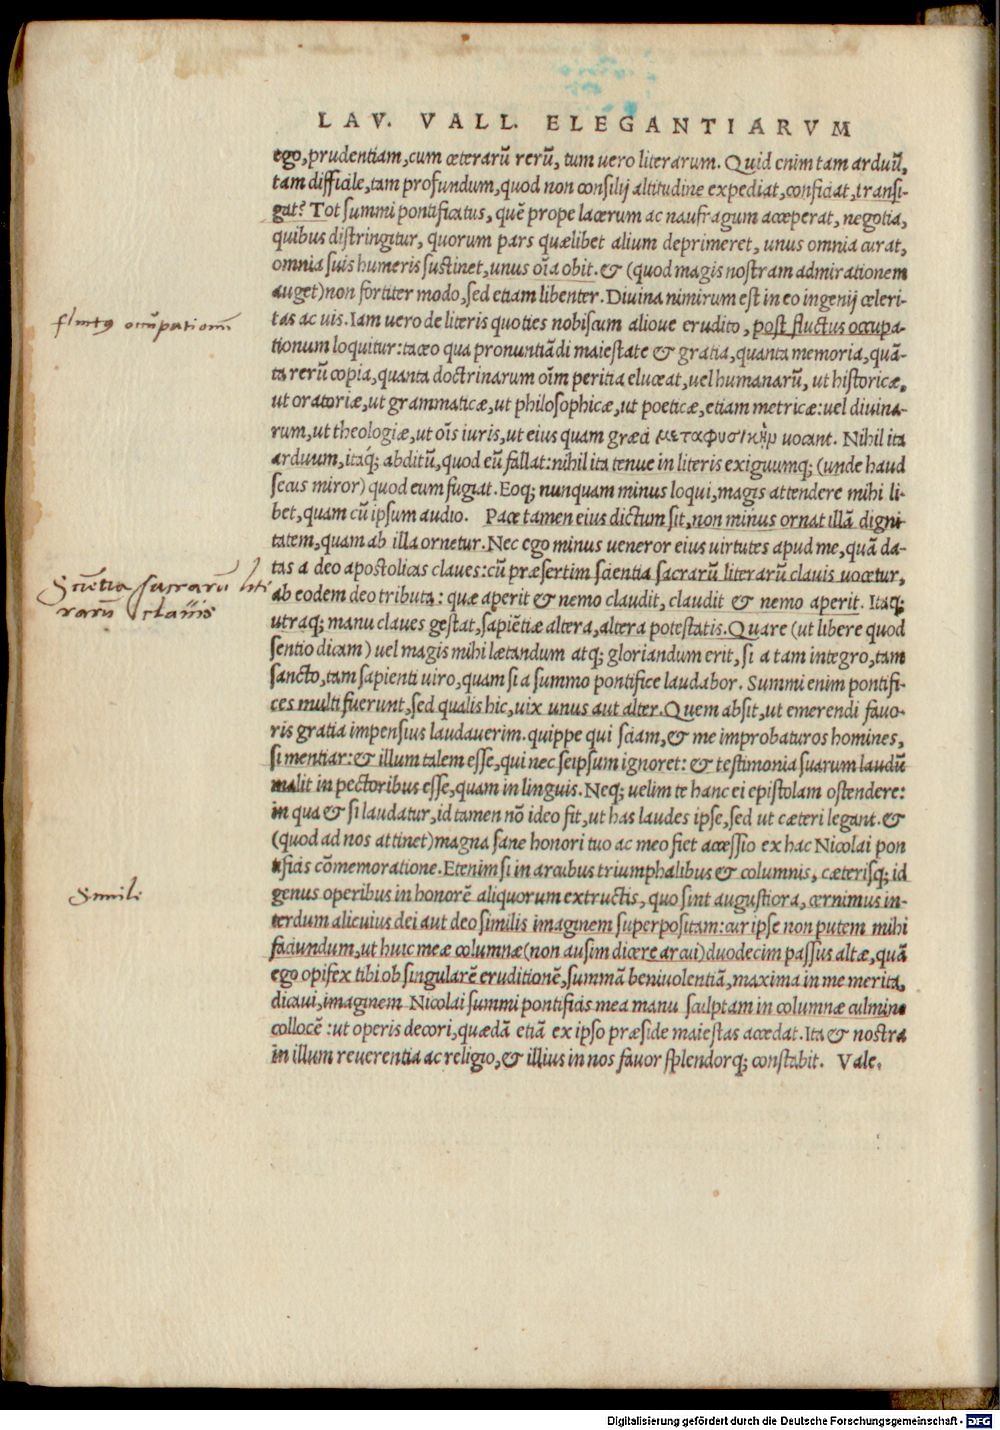 LAV. VALL. ELEGANTIARVM
ego, prudentiam, cum cæterarũ rerũ, tum uero literarum. Quid enim tam arduũ,
tam difficile, tam profundum, quod non consilij altitudine expediat, conficiat, transi-
gat? Tot summi pontificatus, quẽ prope lacerum ac naufragum acceperat, negotia,
quibus distringitur, quorum pars quælibet alium deprimeret, unus omnia curat,
omnia suis humeris sustinet, unus oĩa obit. & (quod magis nostram admirationem
auget) non fortiter modo, sed etiam libenter. Diuina nimirum est in eo ingenij celeri-
tas ac uis. Iam uero de literis quoties nobiscum alioue erudito, post fluctus occupa-
fluctus occupationum
tionum loquitur: taceo qua pronuntiãdi maiestate & gratia, quanta memoria, quã-
ta rerũ copia, quanta doctrinarum oĩm peritia eluceat, uel humanarũ, ut historicæ,
ut oratoriæ, ut grammaticæ, ut philosophicæ, ut poeticæ, etiam metricæ: uel diuina-
rum, ut theologiæ, ut oĩs iuris, ut eius quam græci μεταφυσικὴν uocant. Nihil ita
arduum, itaq; abditũ, quod eũ fallat: nihil ita tenue in literis exiguumq; (unde haud
secus miror) quod eum fugiat. Eoq; nunquam minus loqui, magis attendere mihi li-
bet, quam cũ ipsum audio. Pace tamen eius dictum sit, non minus ornat illã digni
tatem, quam ab illa ornetur. Nec ego minus ueneror eius uirtutes apud me, quã da-
tas a deo apostolicas claues: cũ præsertim scientia sacrarũ literarũ clauis uocetur,
Sciẽtia sacrarũ lite
rarũ clauis
ab eodem deo tributa: quæ aperit & nemo claudit, claudit & nemo aperit. Itaq;
utraq; manu claues gestat, sapiẽtiæ altera, altera potestatis. Quare (ut libere quod
sentio dicam) uel magis mihi lætandum atq; gloriandum erit, si a tam integro, tam
sancto, tam sapienti uiro, quam si a summo pontifice laudabor. Summi enim pontifi-
ces multi fuerunt, sed qualis hic, uix unus aut alter. Quem absit, ut emerendi fauo-
ris gratia impensius laudauerim. quippe qui sciam, & me improbaturos homines,
si mentiar: & illum talem esse, qui nec seipsum ignoret: & testimonia suarum laudũ
malit in pectoribus esse, quam in linguis. Neq; uelim te hanc ei epistolam ostendere:
in qua & si laudatur, id tamen nõ ideo fit, ut has laudes ipse, sed ut cæteri legant. &
(quod ad nos attinet) magna sane honori tuo ac meo fiet accessio ex hac Nicolai pon
tificis cõmemoratione. Etenim si in arcubus triumphalibus & columnis, cæterisq; id
Simili
genus operibus in honorẽ aliquorum extructis, quo sint augustiora, cernimus in-
terdum alicuius dei aut deo similis imaginem superpositam: cur ipse non putem mihi
faciundum, ut huic meæ columnæ (non ausim dicere arcui) duodecim passus altæ, quã
ego opifex tibi ob singularẽ eruditionẽ, summã beniuolentiã, maxima in me merita,
dicaui, imaginem Nicolai summi pontificis mea manu sculptam in columnæ culmine
collocẽ: ut operis decori, quædã etiã ex ipso præside maiestas accedat. Ita & nostra
in illum reuerentia ac religio, & illius in nos fauor splendorq; constabit. Vale.
Digitalisierung gefördert durch die Deutsche Forschungsgemeinschaft - DFG